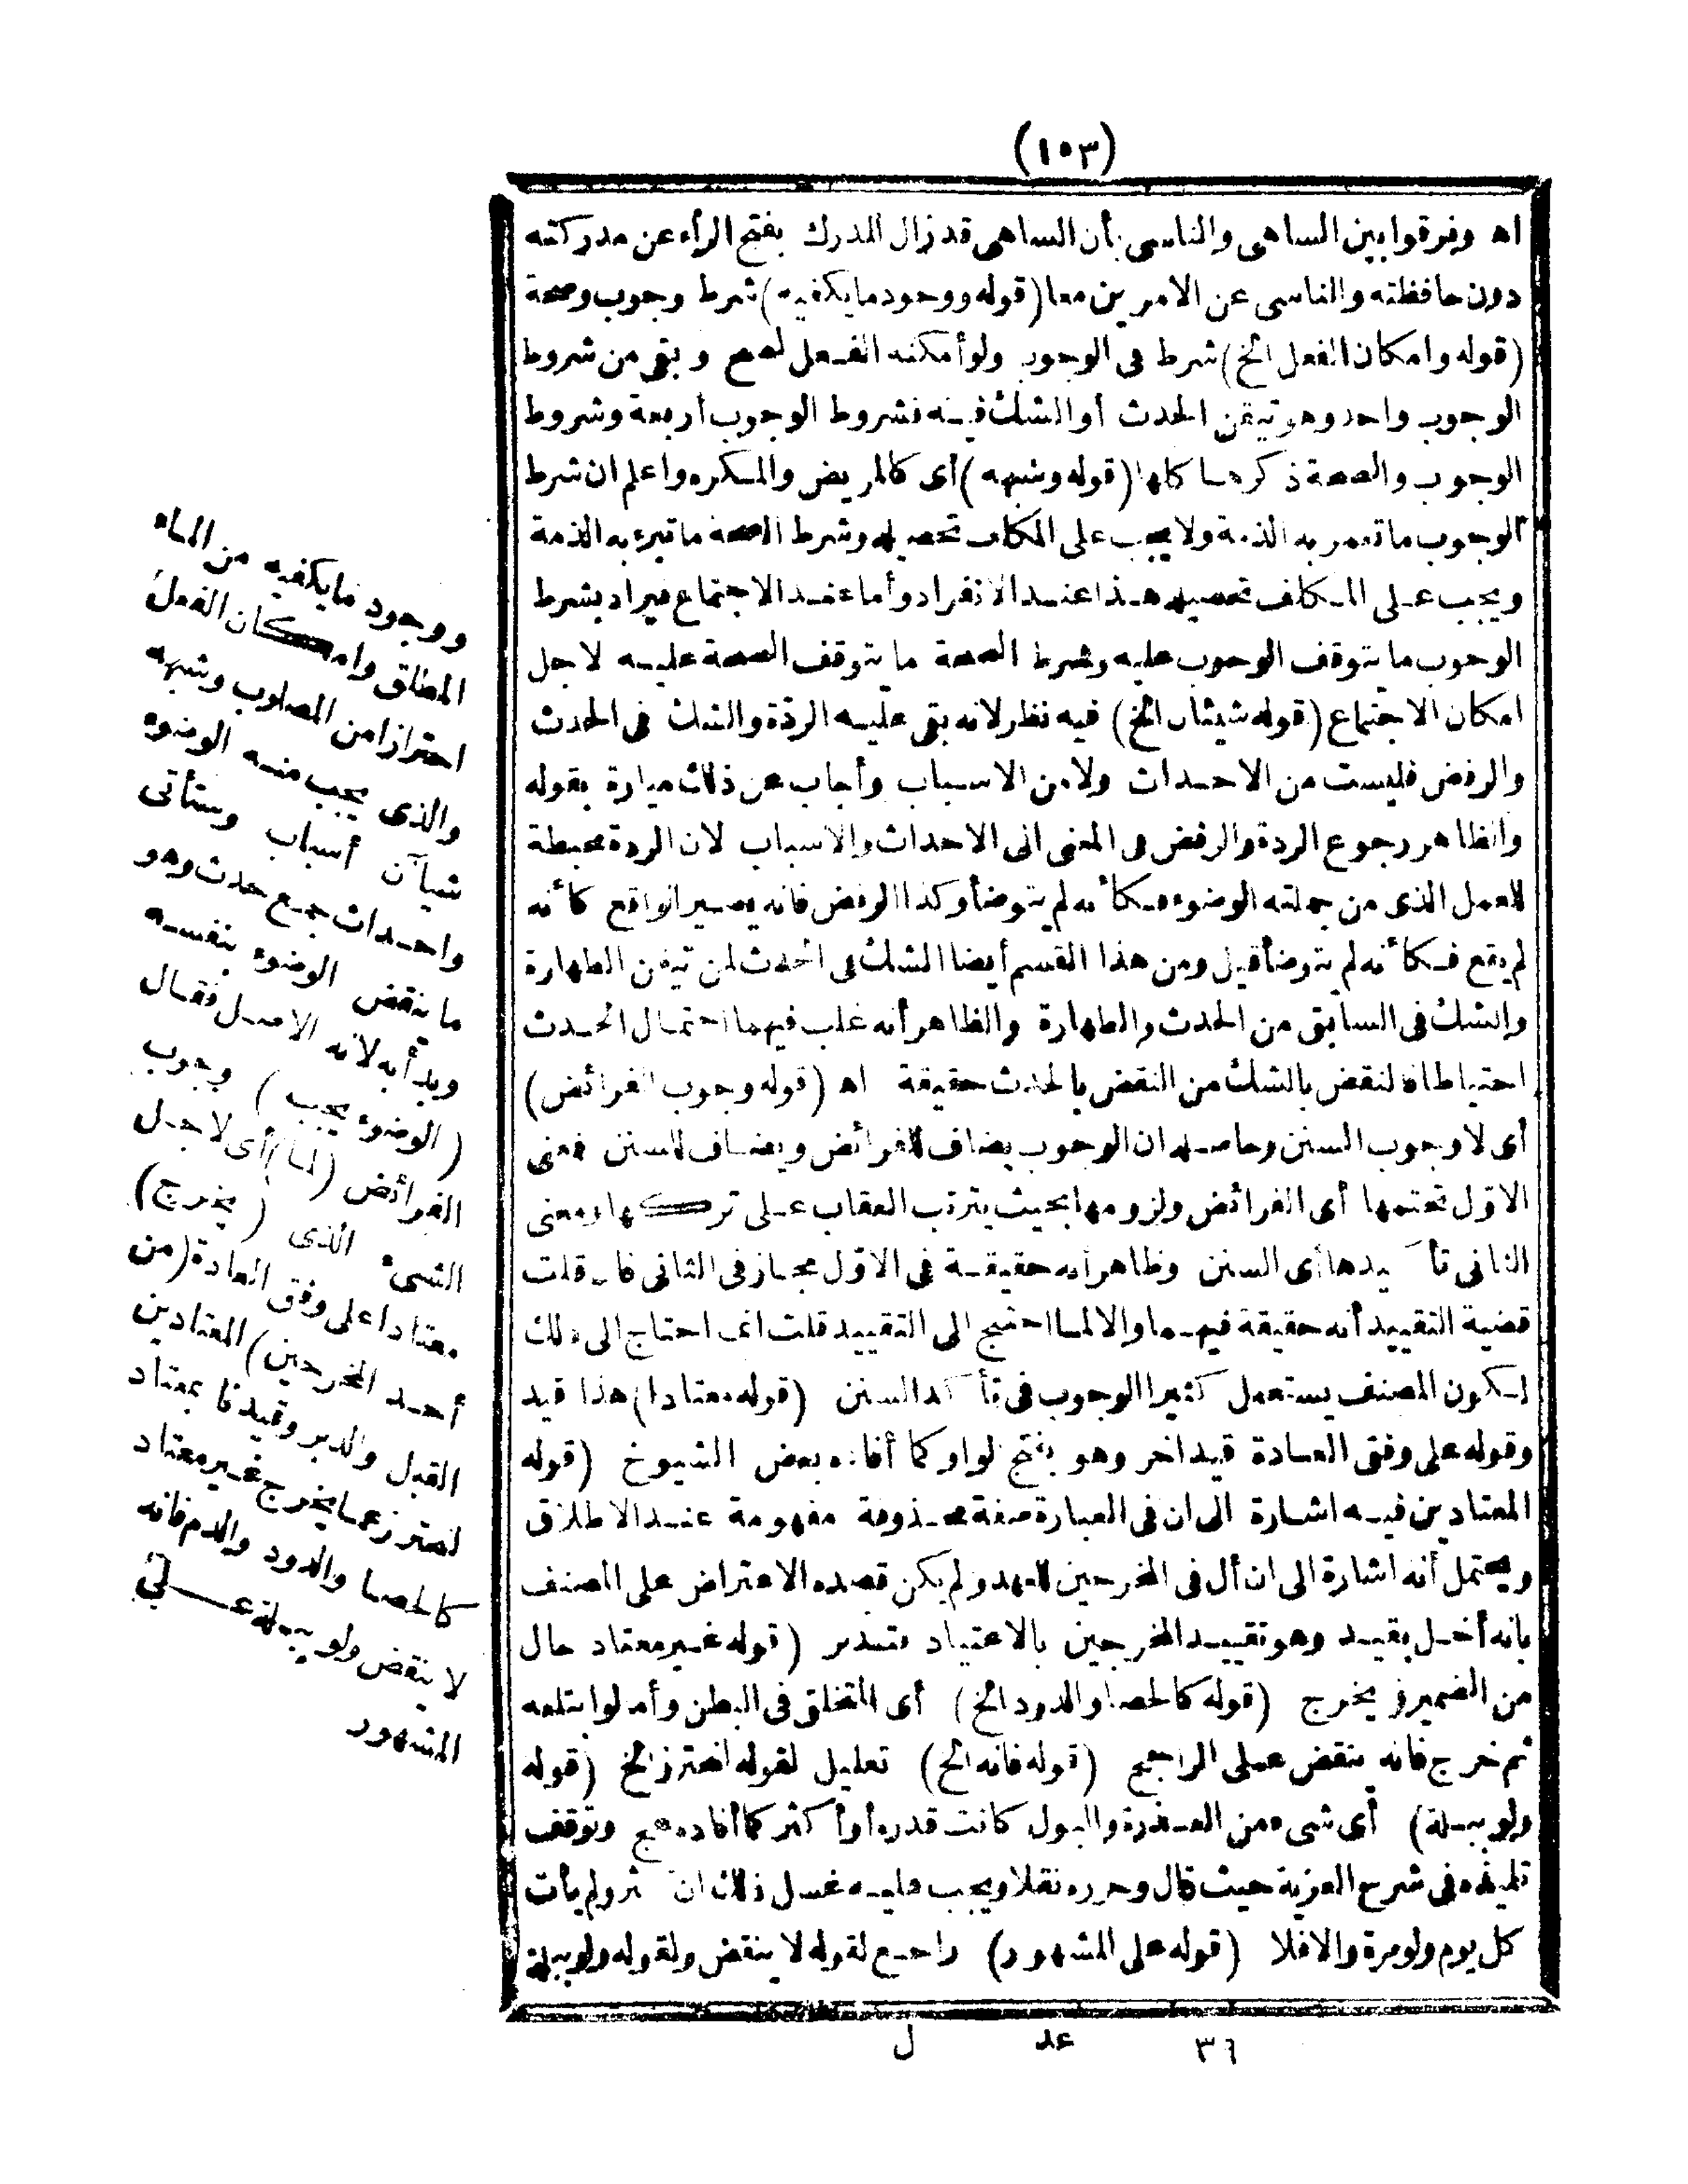 (١٥٣)
اه وفرقوا بين الساهى والناسى بأن الساهى قد زال المدرك بفتح الراء عن مدركته
دون حافظته والناسى عن الامرين معا (قوله ووجود ما يكفيه) شرط وجوب وصحة
(قوله وامكان الفعل الخ) شرط فى الوجوب ولو أمكنه الفعل لصح وبقى من شروط
الوجوب واحد وهو تيقن الحدث أو الشك فيه فشروط الوجوب أربعة وشروط
الوجوب والصحة ذكرها كلها (قوله وشبهه) أى كالمريض والمكره واعلم ان شرط
الوجوب ما تعمر به الذمة ولا يجب على المكلف تحصيله وشرط الصحة ما تبرء به الذمة
ويجب على المكلف تحصيله هذا عند الانفراد وأما عند الاجتماع فيراد بشرط
الوجوب ما يتوقف الوجوب عليه وشرط الصحة ما يتوقف الصحة عليه لاجل
امكان الاجتماع (قوله شيئان الخ) فيه نظر لانه بقى عليه الردة والشك فى الحدث
والرفض فليست من الاحداث ولا من الاسباب وأجاب عن ذلك ميارة بقوله
والظاهر رجوع الردة والرفض فى المعنى الى الاحداث والاسباب لان الردة محبطة
للعمل الذى من جملته الوضوء فكأنه لم يتوضأ وكذا الرفض فانه يصير الواقع كأنه
لم يقع فكأنه لم يتوضأ قيل ومن هذا القسم أيضا الشك فى الحدث لمن تيقن الطهارة
والشك فى السابق من الحدث والطهارة والظاهر أنه غلب فيهما احتمال الحدث
احتياطا فالنقض بالشك من النقض بالحدث حقيقة اه (قوله وجوب الفرائض)
أى لا وجوب السنن وحاصله ان الوجوب يضاف للفرائض ويضاف للسنن فمعنى
الاول تحتمها أى الفرائض ولزومها بحيث يترتب العقاب على تركها ومعنى
الثانى تأكيدها أى السنن وظاهر أنه حقيقة فى الاول مجاز فى الثانى فان قلت
قضية التقييد أنه حقيقة فيهما والا لما احتيج الى التقييد قلت انما احتاج الى ذلك
لكون المصنف يستعمل كثيرا الوجوب فى تأكد السنن (قوله معتادا) هذا قيد
وقوله على وفق العادة قيد اخر وهو بفتح الواو كما أفاده بعض الشيوخ (قوله
المعتادين فيه اشارة الى ان فى العبارة صفة محذوفة مفهومة عند الاطلاق
ويحتمل أنه اشارة الى ان أل فى المخرجين للعهد ولم يكن قصده الاعتراض على المصنف
بانه أخل بقيد وهو تقييد المخرجين بالاعتياد فتدبر (قوله غير معتاد حال
من الضمير فى يخرج (قوله كالحصا والدود الخ) أى المتخلق فى البطن وأما لو ابتلعه
ثم خرج فانه ينقض على الراجح (قوله فانه الخ) تعليل لقوله لنحترز الخ (قوله
ولو ببلة) أى شىء من العذرة والبول كانت قدره أو أكثر كما أفاده عج وتوقف
تلميذه فى شرح العزية حيث قال وحرره نقلا ويجب عليه غسل ذلك ان كثر ولم يأت
كل يوم ولو مرة والا فلا (قوله على المشهور) راجع لقوله لا ينقض ولقوله ولو ببلة
ووجود ما يكفيه من الماء
المطلق وامكان الفعل
احترازا من المصلوب وشبهه
والذى يجب منه الوضوء
شيآن أسباب وستأتى
واحداث جمع حدث وهو
ما ينقض الوضوء بنفسه
وبدأ به لانه الاصل فقال
(الوضوء يجب) وجوب
الفرائض (لما) أى لاجل
الشىء الذى (يخرج)
معتادا على وفق العادة (من
أحد المخرجين) المعتادين
القبل والدبر وقيدنا بمعتاد
لنحترز عما يخرج غير معتاد
كالحصا والدود والدم فانه
لا ينقض ولو ببلة على
المشهور
٣٦ عد ل